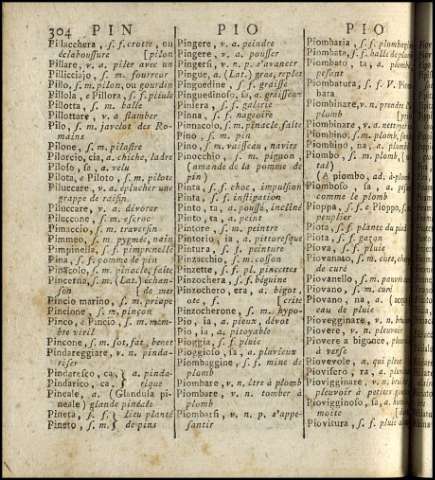 304 PIN PIO PIO
Pillacchera, s. f. crotte, ou
éclaboussure [pilon
Pillare, v. a. piler avec un
Pillicciajo, s. m. fourreur
Pillo, s. m. pilon, ou gourdin
Pillola, e Pillora, s. f. pilule
Pillotta, s. m. balle
Pillottare, v. a. flamber
Pilo, s. m. javelot des Ro-
mains
Pilone, s. m. pilastre
Pilorcio, cia, a. chiche, ladre
Piloso, sa, a. velu
Pilota, e Piloto, s. m. pilote
Piluccare, v. a. éplucher une
grappe de raisin
Piluccare, v. a. dévorer
Piluccone, s. m. escroc
Pimaccio, s. m. traversin
Pimmeo, s. m. pygmée, nain
Pimpinella, s. f. pimprenelle
Pina, s. f. pomme de pin
Pinacolo, s. m. pinacle, faîte
Pincerna, s. m. (Lat.) échan-
son
Pincio marino, s. m. priape [de mer
Pincione, s. m. pinçon
Pinco, e Pincio, s. m. mem-
bre viril
Pincone, s. m. sot, fat, benet
Pindareggiare, v. n. pinda-
riser
Pindaresco, ca, } a. pinda-
Pindarico, ca, } rique
Pineale, a. (Glandula pi-
neale) glande pinéale
Pineta, s. f. } lieu planté
Pineto, s. m. } de pins
Pingere, v. a. peindre
Pingere, v. a. pousser
Pingersi, v. n. p. s'avancer
Pingue, a. (Lat.) gras, replet
Pinguedine, s. f. graisse
Pinguedinoso, sa, a. graisseux
Piniera, s. f. galerie
Pinna, s. f. nageoire
Pinnacolo, s. m. pinacle, faîte
Pino, s. m. pin
Pino, s. m. vaisseau, navire
Pinocchio, s. m. pignon,
(amande de la pomme de
pin)
Pinta, s. f. choc, impulsion
Pinta, s. f. instigation
Pinto, ta, a. poussé, incliné
Pinto, ta, a. peint
Pintore, s. m. peintre
Pintorio, ia, a. pittoresque
Pintura, s. f. peinture
Pinzacchio, s. m. cosson
Pinzette, s. f. pl. pincettes
Pinzochera, s. f. béguine
Pinzochero, era, a. bigot,
ote, f. [crite
Pinzocherone, s. m. hypo-
Pio, ia, a. pieux, dévot
Pio, ia, a. pitoyable
Pioggia, s. f. pluie
Pioggioso, ia, a. pluvieux
Piombaggine, s. f. mine de
plomb
Piombare, v. n. être à plomb
Piombare, v. n. tomber à
plomb
Piombarsi, v. n. p. s'appe-
santir
Piombaria, s. f. plomberie
Piombata, s. f. balle de plomb
Piombato, ta, a. plombé
pesant
Piombatura, s. f. V. Piom-
bata
Piombinare, v. n. prendre l
plomb
Piombinare, v. a. nettoyer
Piombino, na, a.
Piombino, s. m. plomb, sonde
Piombo, s. m. plomb, (mé-
tal)
(A piombo, ad. à-plomb
Piomboso, sa, a. pesant
comme le plomb
Pioppa, s. f. e Pioppo, s. m.
peuplier
Piota, s. f. plante du pied
Piota, s. f. gazon
Piova, s. f. pluie
Piovanato, s. m. cure, charge
de curé
Piovanello, s. m. pauvre
Piovano, s. m. curé
Piovano, na, a. (Acqua
eau de pluie
Piovegginare, v. n. bruiner
Piovere, v. n. pleuvoir
Piovere a bigonce, pleuvoir
à verse
Piovevole, a. qui
Piovifero, ra, a. pluvieux
Piovigginare, v. n. bruiner,
pleuvoir à petites goutt
Piovigginoso, sa, a. humide
moite [de
Piovitura, s. f. pluie